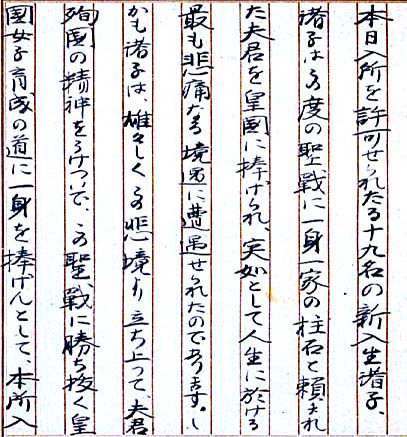 本日入所を許可せられたる十九名の新入生諸子、
諸子はこの度の聖戦に一身一家の柱石と頼まれ
た夫君を皇国に捧げられ、突如として人生に於ける
最も悲痛なる境遇に遭遇せられたのであります。し
かも諸子は、雄々しくこの悲境より立ち上って、夫君
殉国の精神をうけついで、この聖戦に勝ち抜く皇
国女子育成の道に一身を捧げんとして、本所入